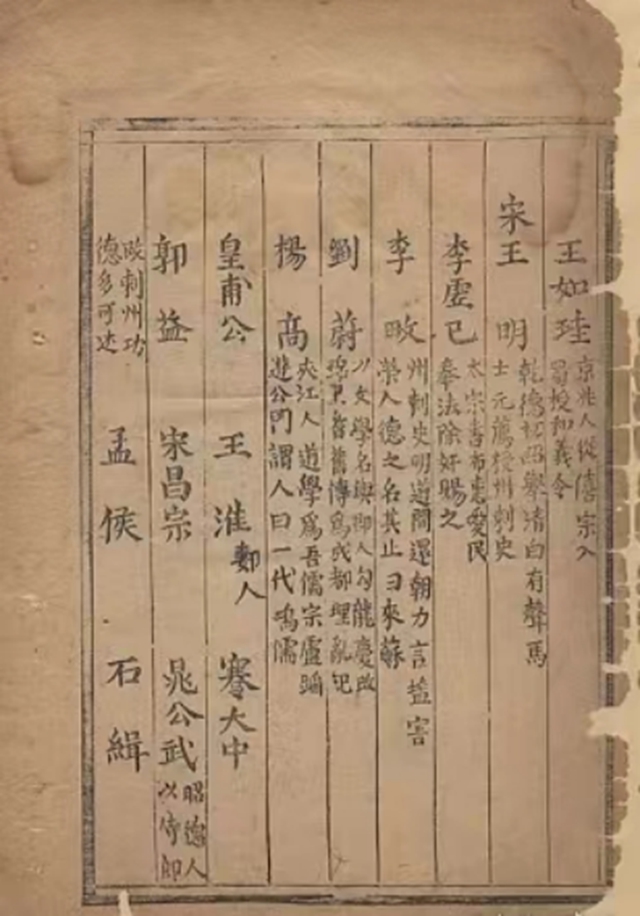 王如珪 京兆人從僖宗入蜀授和義令
宋王明 乾德初西舉清白有聲馬士元薦授州刺史
李虛己 太宗書布惠愛民奉法除奸賜之
李畋 州刺史明道間還朝力言鹽害榮人德之名其止曰來蘇
劉蔚 以文學名與鄉人勾龍慶改 耆舊傳爲成都理亂記
楊高 夾江人道學爲吾儒宗盧 遊公門謂人曰一代鴻儒
皇甫公 王淮 鄞人 蹇大中
郭益 宋昌宗 晁公武 昭德人以侍郎
改刺州功德多可述 孟侯 石緝